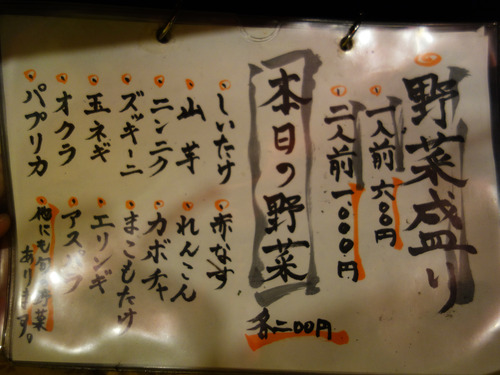 野菜盛り
一人前 六〇〇円
二人前 一〇〇〇円
本日の野菜
各二〇〇円
しいたけ
赤なす
山芋
れんこん
ニンニク
カボチャ
ズッキーニ
まこもたけ
玉ネギ
エリンギ
オクラ
アスパラ
パプリカ
他にも旬の野菜
あります。